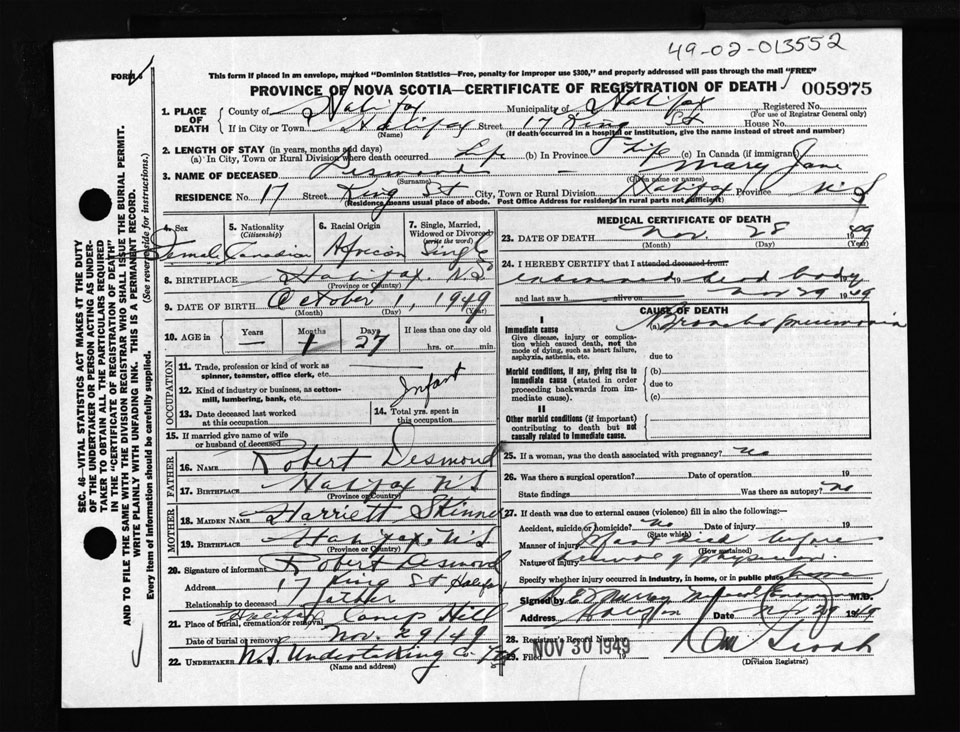 49-02-013552
FORM 6
This form if placed in an envelope, marked "Dominion Statistics—Free, penalty for improper use $300," and properly addressed will pass through the mail "FREE"
PROVINCE OF NOVA SCOTIA—CERTIFICATE OF REGISTRATION OF DEATH 005975
1. PLACE OF DEATH
County of Halifax Municipality of Halifax Registered No.
(For use of Registrar General only)
If in City or Town Halifax Street 17 King St House No.
(Name) (If death occurred in a hospital or institution, give the name instead of street and number)
2. LENGTH OF STAY (in years, months and days)
(a) In City, Town or Rural Division where death occurred Life (b) In Province Life (c) In Canada (if immigrant)
3. NAME OF DECEASED Desmond — Mary Jane
(Surname) (Given name or names)
RESIDENCE No. 17 Street King St City, Town or Rural Division Halifax Province N S
(Residence means usual place of abode. Post Office Address for residents in rural parts not sufficient)
4. Sex Female
5. Nationality (Citizenship) Canadian
6. Racial Origin African
7. Single, Married, Widowed or Divorced (write the word) Single
8. BIRTHPLACE Halifax. N.S
(Province or Country)
9. DATE OF BIRTH October 1, 1949
(Month) (Day) (Year)
10. AGE in Years — Months 1 Days 27 If less than one day old
hrs. or min.
OCCUPATION
11. Trade, profession or kind of work as spinner, teamster, office clerk, etc.
12. Kind of industry or business, as cotton-mill, lumbering, bank, etc. Infant
13. Date deceased last worked at this occupation
14. Total yrs. spent in this occupation
15. If married give name of wife or husband of deceased
FATHER
16. NAME Robert Desmond
17. BIRTHPLACE Halifax N S
(Province or Country)
MOTHER
18. MAIDEN NAME Harriett Skinner
19. BIRTHPLACE Halifax N S
(Province or Country)
20. Signature of informant Robert Desmond
Address 17 King St Halifax
Relationship to deceased Father
21. Place of burial, cremation or removal Halifax Camp Hill
Date of burial or removal Nov. 29/49
22. UNDERTAKER N.S. Undertaking Co Ltd
(Name and address)
MEDICAL CERTIFICATE OF DEATH
23. DATE OF DEATH Nov. 28 1949
(Month) (Day) (Year)
24. I HEREBY CERTIFY that I attended deceased from:
examined dead body
and last saw h alive on Nov 29 1949
CAUSE OF DEATH
I
Immediate cause
Give disease, injury or complication which caused death, not the mode of dying, such as heart failure, asphyxia, asthenia, etc.
(a) Broncho pneumonia
due to
Morbid conditions, if any, giving rise to immediate cause (stated in order proceeding backwards from immediate cause).
(b)
due to
(c)
II
Other morbid conditions (if important) contributing to death but not causally related to immediate cause.
25. If a woman, was the death associated with pregnancy? No
26. Was there a surgical operation? Date of operation 19
State findings Was there an autopsy? No
27. If death was due to external causes (violence) fill in also the following:—
Accident, suicide or homicide? No Date of injury 19
(State which)
Manner of injury died before
(How sustained)
Nature of injury arrival of physician.
Specify whether injury occurred in industry, in home, or in public place home
Signed by Murray M.D.
Address Halifax Date Nov 29 1949
28. Registrar's Record Number
29. Filed NOV 30 1949 19
(Division Registrar)
SEC. 46—VITAL STATISTICS ACT MAKES IT THE DUTY
OF THE UNDERTAKER OR PERSON ACTING AS UNDER-
TAKER TO OBTAIN ALL THE PARTICULARS REQUIRED
IN THE "CERTIFICATE OF REGISTRATION OF DEATH"
AND TO FILE THE SAME WITH THE DIVISION REGISTRAR WHO SHALL ISSUE THE BURIAL PERMIT.
WRITE PLAINLY WITH UNFADING INK. THIS IS A PERMANENT RECORD.
Every item of information should be carefully supplied. (See reverse side for instructions.)